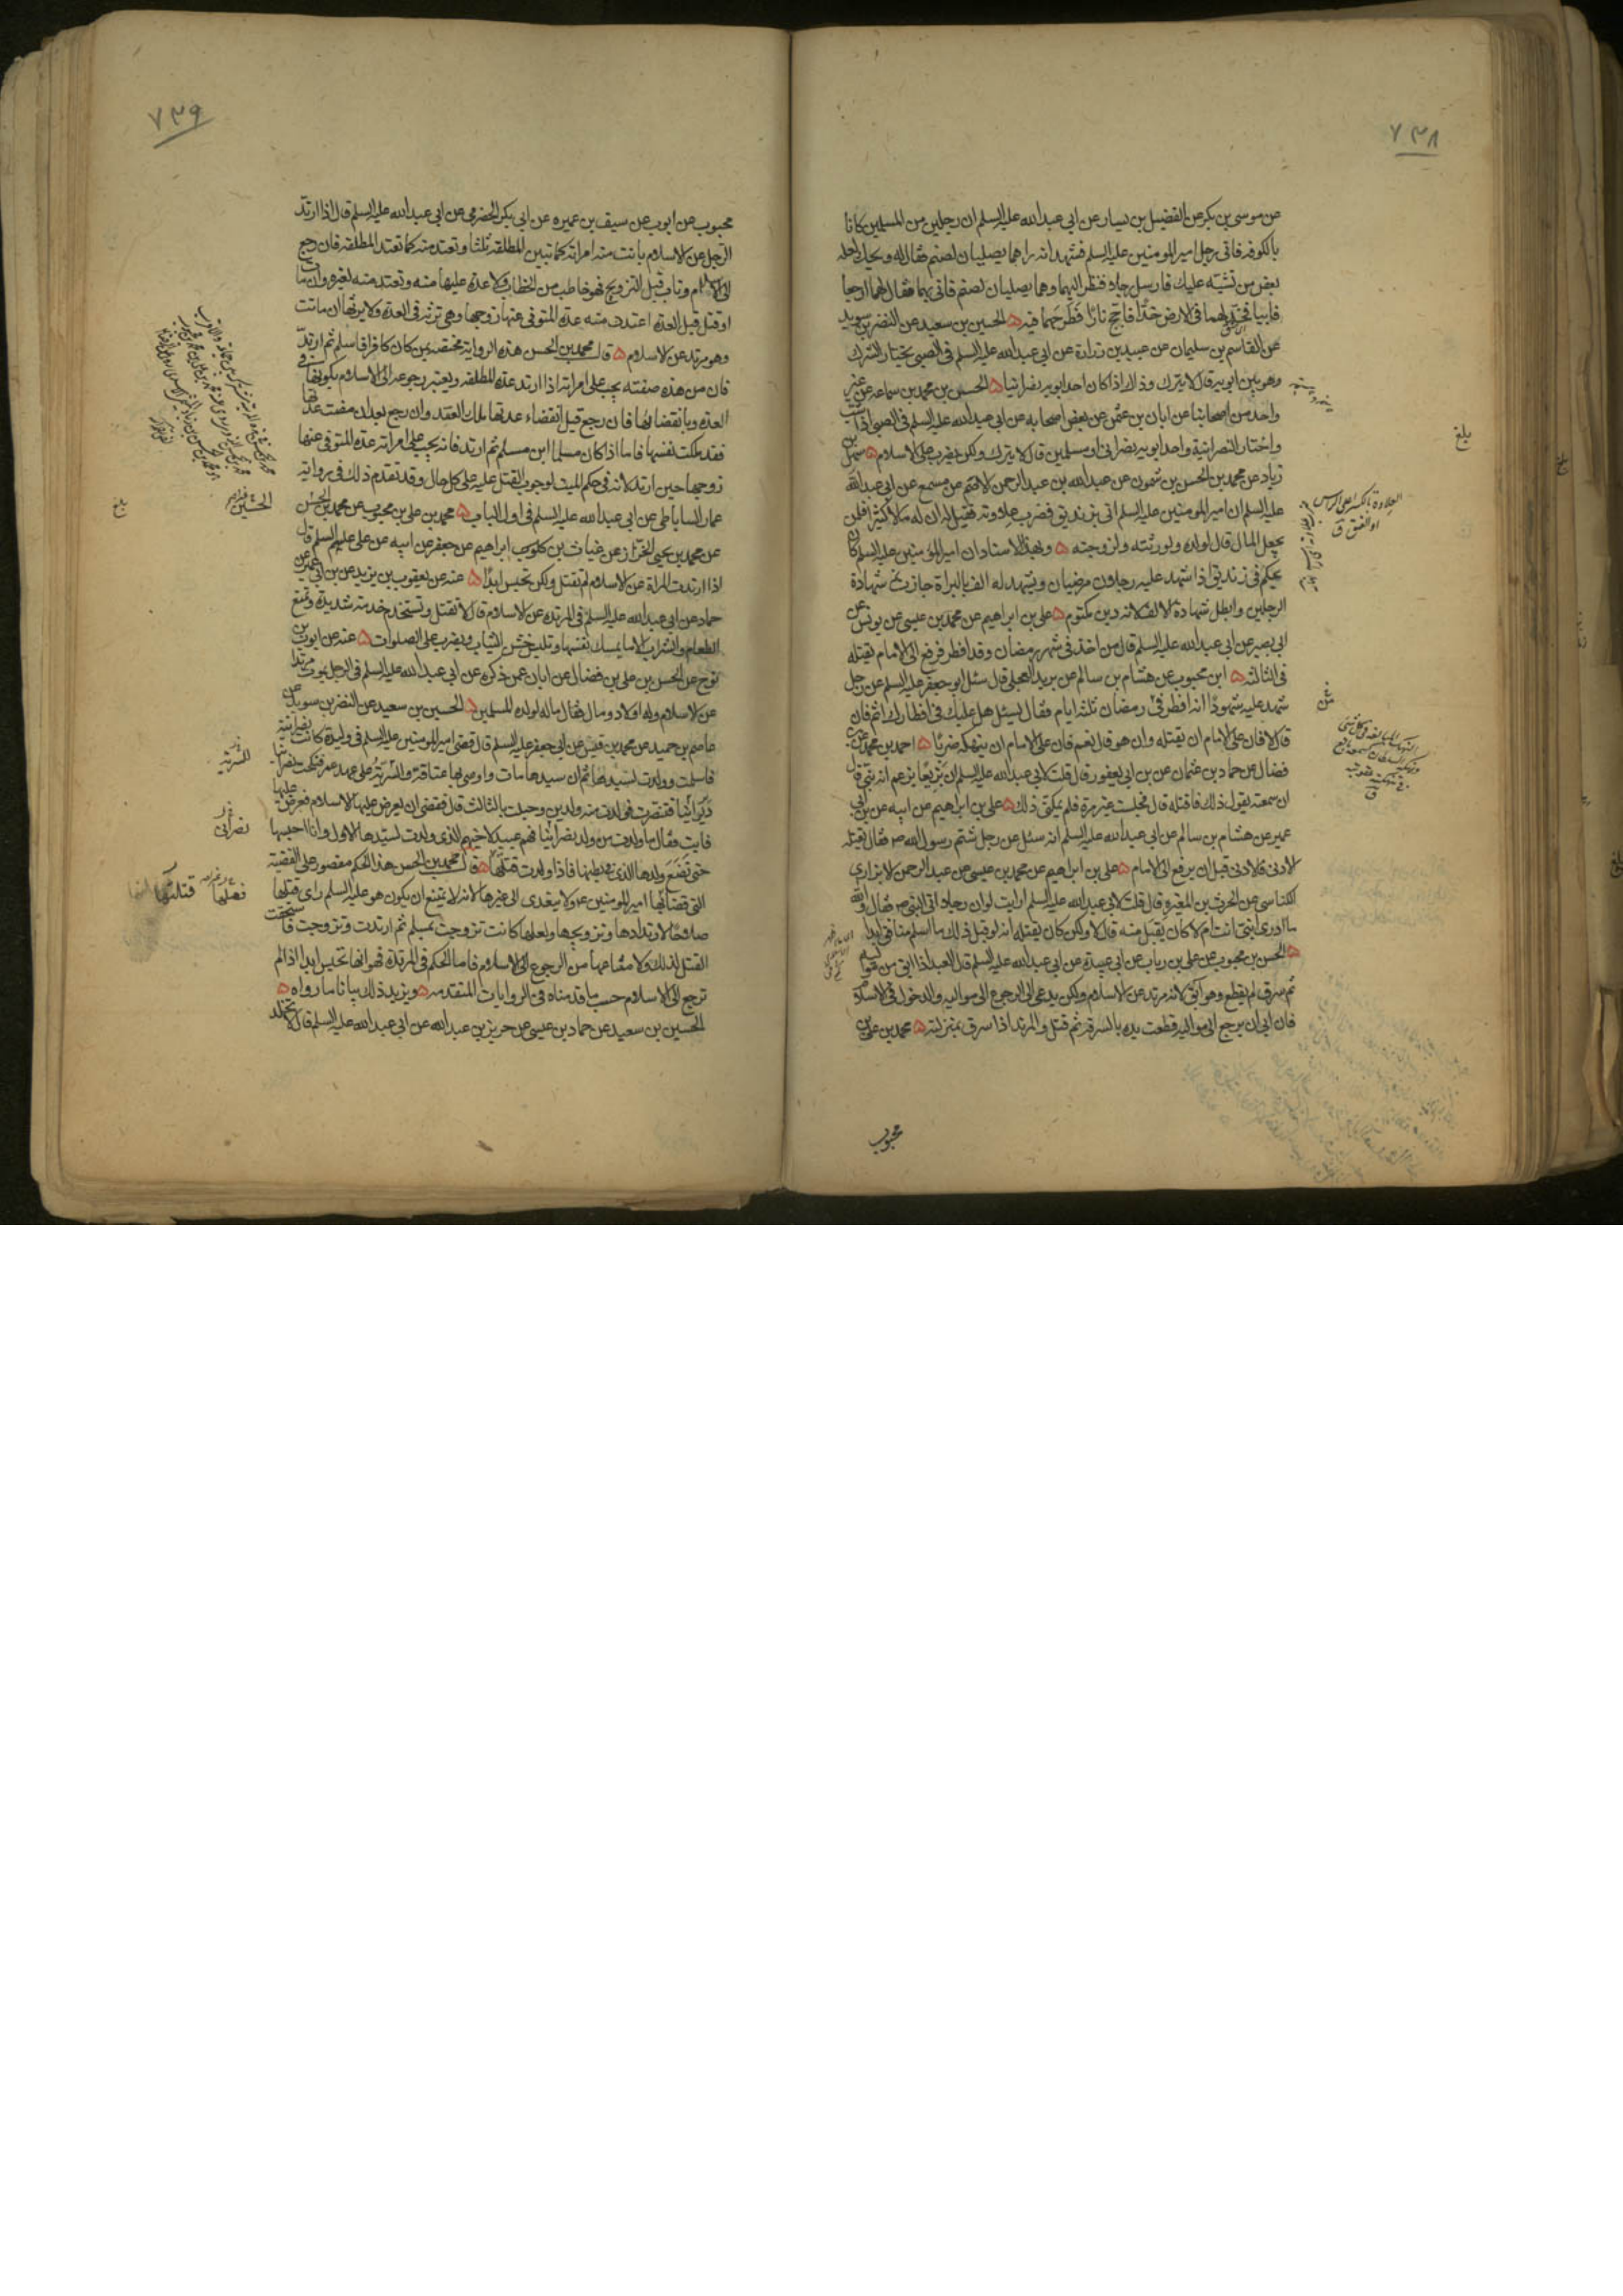 ٧٣٨
عن موسى بن بكر عن الفضيل بن يسار عن ابى عبد الله عليه السلم ان رجلين من المسلمين كانا
بالكوفه فاتى رجل امير المومنين عليه السلم فشهد انه راهما يصليان لصنم فقال له ويحك لعله
بعض من تشبه عليك فارسل رجلا فنظر اليهما وهما يصليان لصنم فاتى بهما فقال لهما ارجعا
فابيا فخد لهما فى الارض خدا فاجج نارا فطرحهما فيه الحسين بن سعيد عن النضر بن سويد
عن القاسم بن سليمان عن عبيد بن زرارة عن ابى عبد الله عليه السلم فى الصبى يختار الشرك
وهو بين ابويه قال لا يترك وذلك اذا كان احد ابويه نصرانيا الحسن بن محمد بن سماعه عن غير
واحد من اصحابنا عن ابان بن عثمن عن بعض اصحابه عن ابى عبد الله عليه السلم فى الصبى اذا شب
واختار النصرانية واحد ابويه نصرانى او مسلمين قال لا يترك ولكن يضرب على الاسلام سهل بن
زياد عن محمد بن الحسن بن شمون عن عبد الله بن عبد الرحمن الاصم عن مسمع عن ابى عبد الله
عليه السلم ان امير المومنين عليه السلم اتى بزنديق فضرب علاوته فقيل له ان له مالا كثيرا فلمن
يجعل المال قال لولده ولورثته ولزوجته وبهذا الاسناد ان امير المؤمنين عليه السلم كان
يحكم فى زنديق اذا شهد عليه رجلان مرضيان ويشهد له الف بالبراة جازت شهادة
الرجلين وابطل شهادة الالف لانه دين مكتوم على بن ابراهيم عن محمد بن عيسى عن يونس عن
ابى بصير عن ابى عبد الله عليه السلم قال من اخذ فى شهر رمضان وقد افطر فرفع الى الامام يقتله
فى الثالثه ابن محبوب عن هشام بن سالم عن بريد العجلى قال سئل ابو جعفر عليه السلم عن رجل
شهد عليه شهودا انه افطر فى رمضان ثلثه ايام فقال يسئل هل عليك فى افطارك اثم فان
قال لا فان على الامام ان يقتله وان هو قال نعم فان على الامام ان ينهكه ضربا احمد بن محمد عن
فضال عن حماد بن عثمان عن بن ابى يعفور قال قلت لابى عبد الله عليه السلم ان بزيعا يزعم انه نبى قال
ان سمعته يقول ذلك فاقتله قال فجلست غير مرة فلم يمكنى ذلك على بن ابراهيم عن ابيه عن بن ابى
عمير عن هشام بن سالم عن ابى عبد الله عليه السلم انه سئل عن رجل شتم رسول الله ص فقال يقتله
الادنى فالادنى قبل ان يرفع الى الامام على بن ابراهيم عن محمد بن عيسى عن عبد الرحمن الابزارى
الكناسى عن الحرث بن المغيرة قال قلت لابى عبد الله عليه السلم ارايت لو ان رجلا اتى النبى ص فقال والله
ما ادرى انبى انت ام لا كان يقبل منه قال لا ولكن كان يقتله انه لو قبل ذلك ما اسلم منافق ابدا
الحسن بن محبوب عن على بن رباب عن ابى عبيدة عن ابى عبد الله عليه السلم قال العبد اذا ابق من مواليه
ثم سرق لم يقطع وهو ابق لانه مرتد عن الاسلام ولكن يدعى الى الرجوع الى مواليه والدخول فى الاسلام
فان ابى ان يرجع الى مواليه قطعت يده بالسرقه ثم قتل والمرتد اذا سرق بمنزلته محمد بن على بن
محبوب
العلاوة بالكسر اعلى الراس
او العنق ق
بلغ
٧٣٩
محبوب عن ايوب عن سيف بن عميره عن ابى بكر الحضرمى عن ابى عبد الله عليه السلم قال اذا ارتد
الرجل عن الاسلام بانت منه امراته كما تبين المطلقه ثلثا وتعتد منه كما تعتد المطلقه فان رجع
الى الاسلام وتاب قبل التزويج فهو خاطب من الخطاب ولا عدة عليها منه وتعتد منه لغيره وان مات
او قتل قبل العدة اعتدت منه عدة المتوفى عنها زوجها وهى ترثه فى العدة ولا يرثها ان ماتت
وهو مرتد عن الاسلام قال محمد بن الحسن هذه الرواية مختصه بمن كان كافرا فاسلم ثم ارتد
فان من هذه صفته يجب على امراته اذا ارتد عدة المطلقه ويعتبر رجوعه الى الاسلام بكونها فى
العدة وبانقضائها فان رجع قبل انقضاء عدتها ملك العقد وان رجع بعد ان مضت عدتها
فقد ملكت نفسها فاما اذا كان مسلما ابن مسلم ثم ارتد فانه يجب على امراته عدة المتوفى عنها
زوجها حين ارتد لانه فى حكم الميت لوجوب القتل عليه على كل حال وقد تقدم ذلك فى رواية
عمار الساباطى عن ابى عبد الله عليه السلم فى اول الباب محمد بن على بن محبوب عن محمد بن الحسن
عن محمد بن يحيى الخزاز عن غياث بن كلوب ابراهيم عن جعفر عن ابيه عن على عليهم السلم قال
اذا ارتدت المراة عن الاسلام لم تقتل ولكن تحبس ابدا عنه عن يعقوب بن يزيد عن بن ابى عمير عن
حماد عن ابى عبد الله عليه السلم فى المرتدة عن الاسلام قال لا تقتل وتستخدم خدمة شديدة وتمنع
الطعام والشراب الا ما يمسك نفسها وتلبس خشن الثياب وتضرب على الصلوات عنه عن ايوب بن
نوح عن الحسن بن على بن فضال عن ابان عمن ذكره عن ابى عبد الله عليه السلم فى الرجل يموت مرتدا
عن الاسلام وله اولاد ومال فقال ماله لولده المسلمين الحسين بن سعيد عن النضر بن سويد عن
عاصم بن حميد عن محمد بن قيس عن ابى جعفر عليه السلم قال قضى امير المومنين عليه السلم فى وليدة كانت نصرانية
فاسلمت وولدت لسيدها ثم ان سيدها مات واوصى بها عتاقة السرية على عهد عمر فنكحت نصرانيا
ديرانيا فتنصرت فولدت منه ولدين وحبلت بالثالث قال فقضى ان يعرض عليها الاسلام فعرض عليها
فابت وقال ما ولدت من ولد نصرانيا فهم عبيد لاخيهم الذى ولدت لسيدها الاول وانا احبسها
حتى تضع ولدها الذى فى بطنها فاذا ولدت قتلتها قال محمد بن الحسن هذا الحكم مقصور على القضية
التى قضاها امير المومنين ع ولا يتعدى الى غيرها لانه لا يمتنع ان يكون هو عليه السلم راى قتلها
صلاحا لارتدادها وتزويجها ولعلها كانت تزوجت بمسلم ثم ارتدت وتزوجت فاستحقت
القتل لذلك ولامتناعها من الرجوع الى الاسلام فاما الحكم فى المرتدة فهو انها تحبس ابدا اذا لم
ترجع الى الاسلام حسب ما قدمناه فى الروايات المتقدمه ويزيد ذلك بيانا ما رواه
الحسين بن سعيد عن حماد بن عيسى عن حريز بن عبد الله عن ابى عبد الله عليه السلم قال لا يخلد
الحسين
نصرانى
قتلتها
بلغ